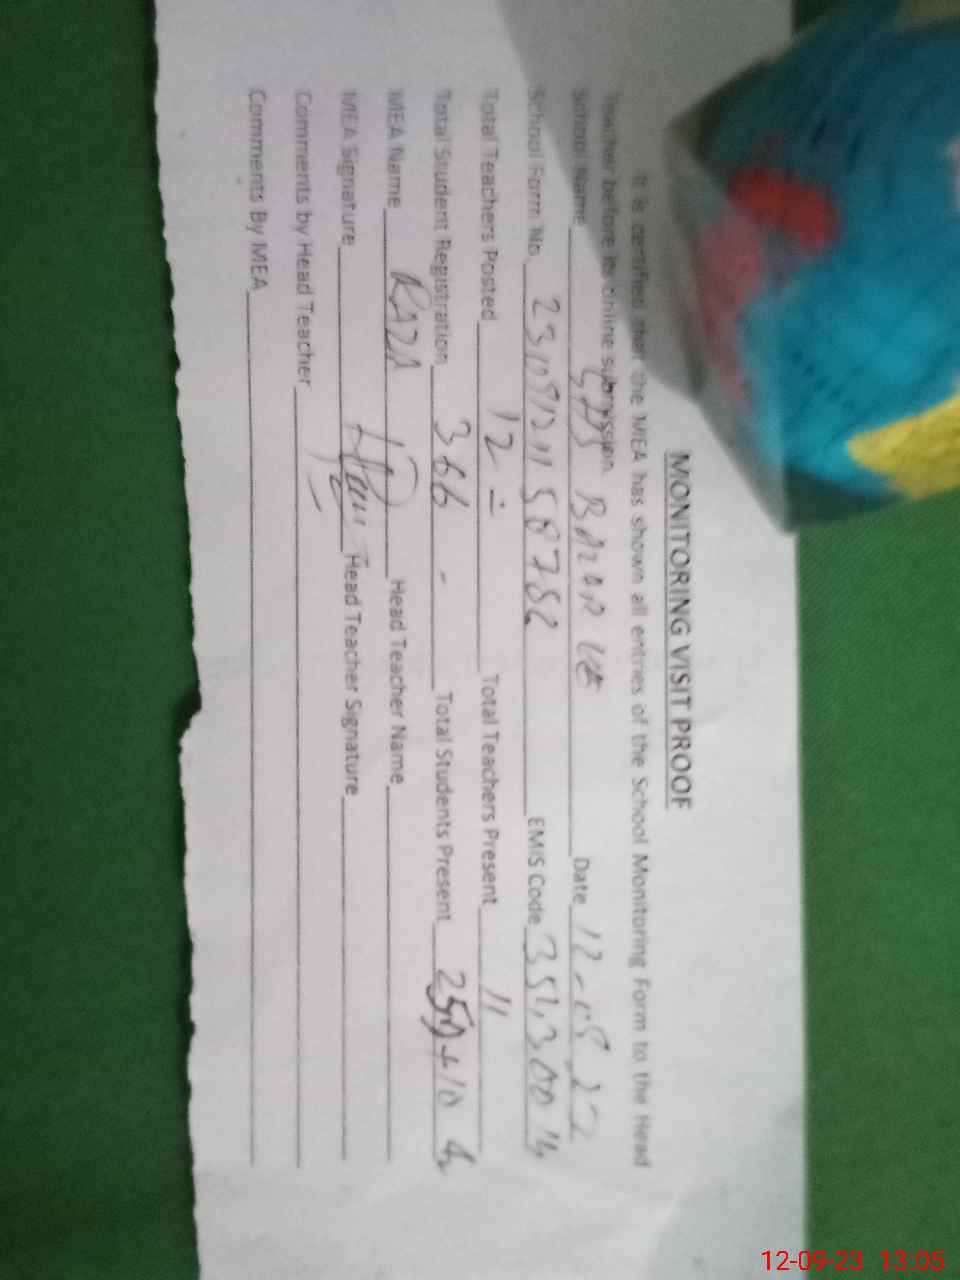 MONITORING VISIT PROOF
It is certified that the MEA has shown all entries of the School Monitoring Form to the Head
Teacher before its online submission.
School Name Date 12-
School Form No. EMIS Code
Total Teachers Posted 12 Total Teachers Present 11
Total Student Registration 366 - Total Students Present
MEA Name RAZA Head Teacher Name
MEA Signature Head Teacher Signature
Comments by Head Teacher
Comments By MEA
12-09-23 13:05